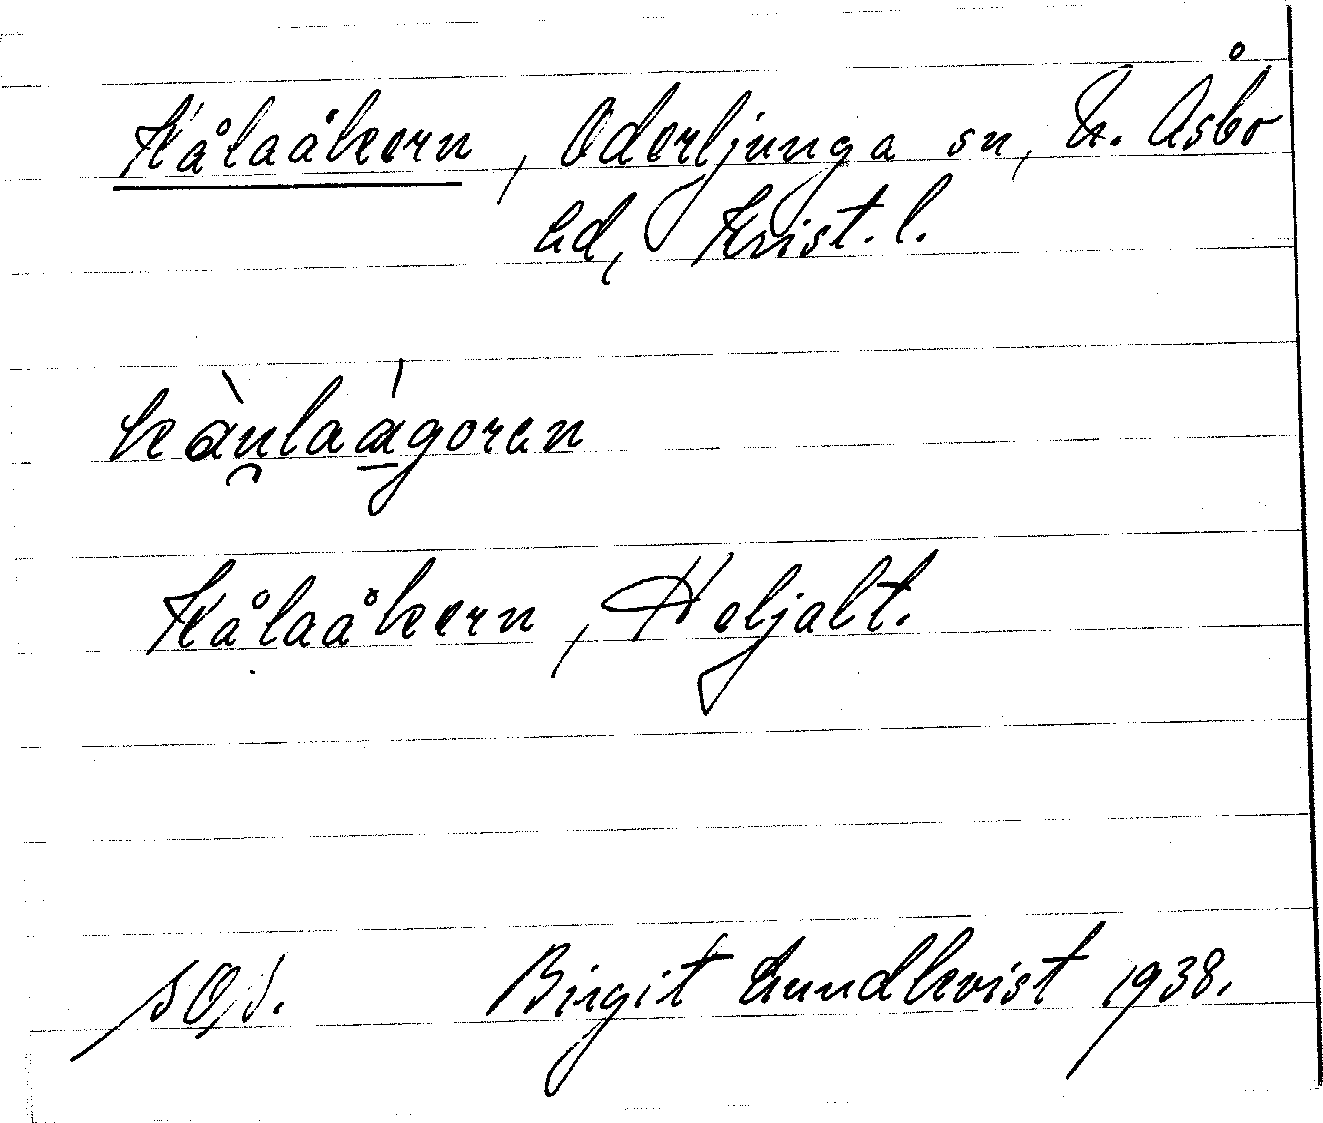 Kålaåkern, Oderljunga sn, N. Åsbo
hd, Krist. l.
kàu̯laágoren
Kålaåkern, Heljalt.
Birgit Lundkvist 1938.